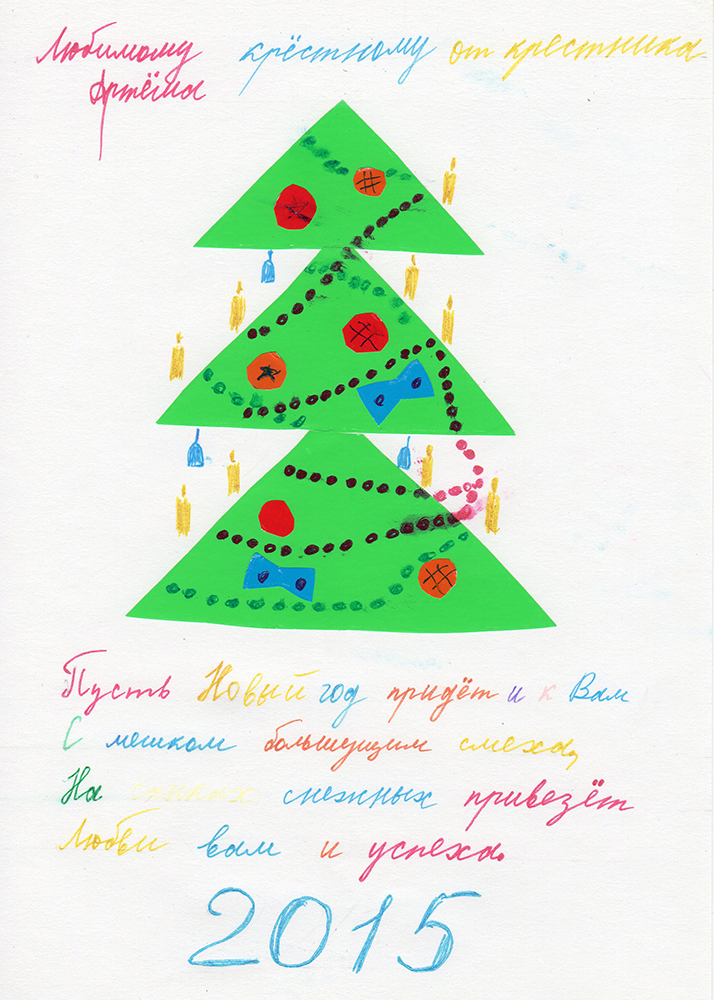 Любимому крёстному от крестника
Артёма
Пусть Новый год придёт и к Вам
С мешком большущим смеха,
На санках снежных привезёт
Любви вам и успеха.
2015